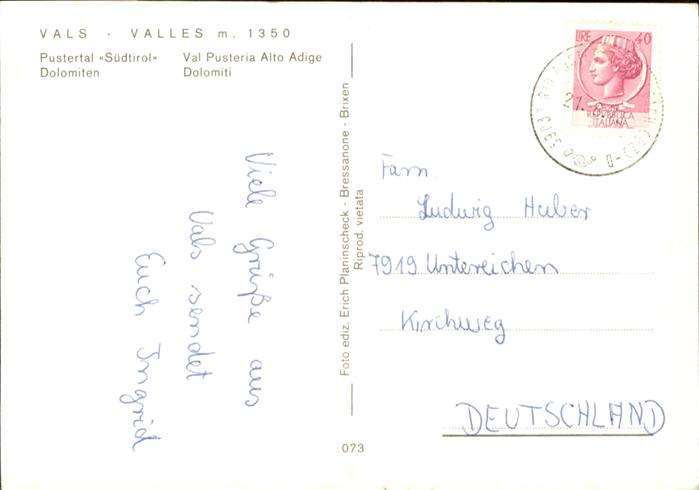 VALS - VALLES m. 1350
Pustertal «Südtirol»
Dolomiten
Val Pusteria Alto Adige
Dolomiti
Viele Grüße aus
Vals sendet
Euch Ingrid
Foto ediz. Erich Planinscheck - Bressanone - Brixen
Riprod. vietata
073
LIRE 40
REPVBBLICA
ITALIANA
27.
Fam.
Ludwig Huber
7919 Untereichen
Kirchweg
DEUTSCHLAND